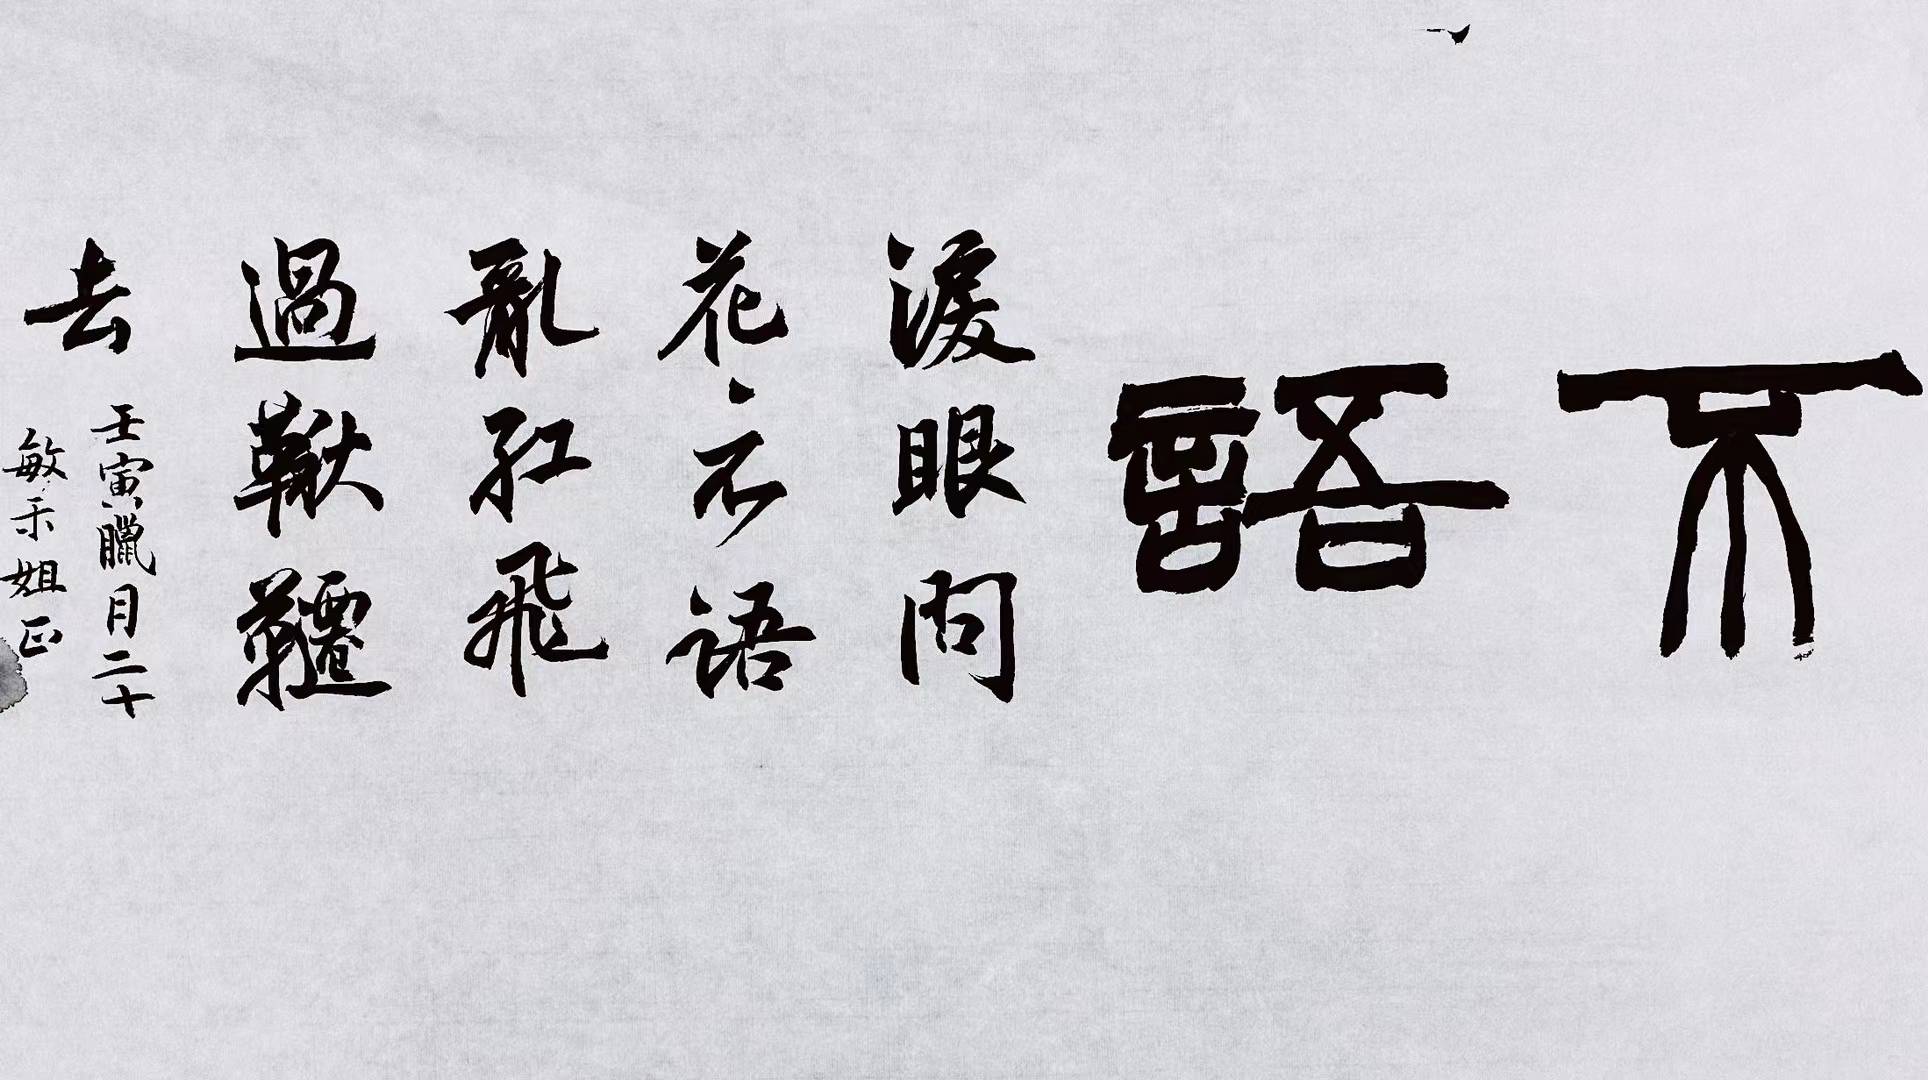 不語
淚眼問
花不語
亂紅飛
過鞦韆
去
壬寅臘月二十
敏姐正